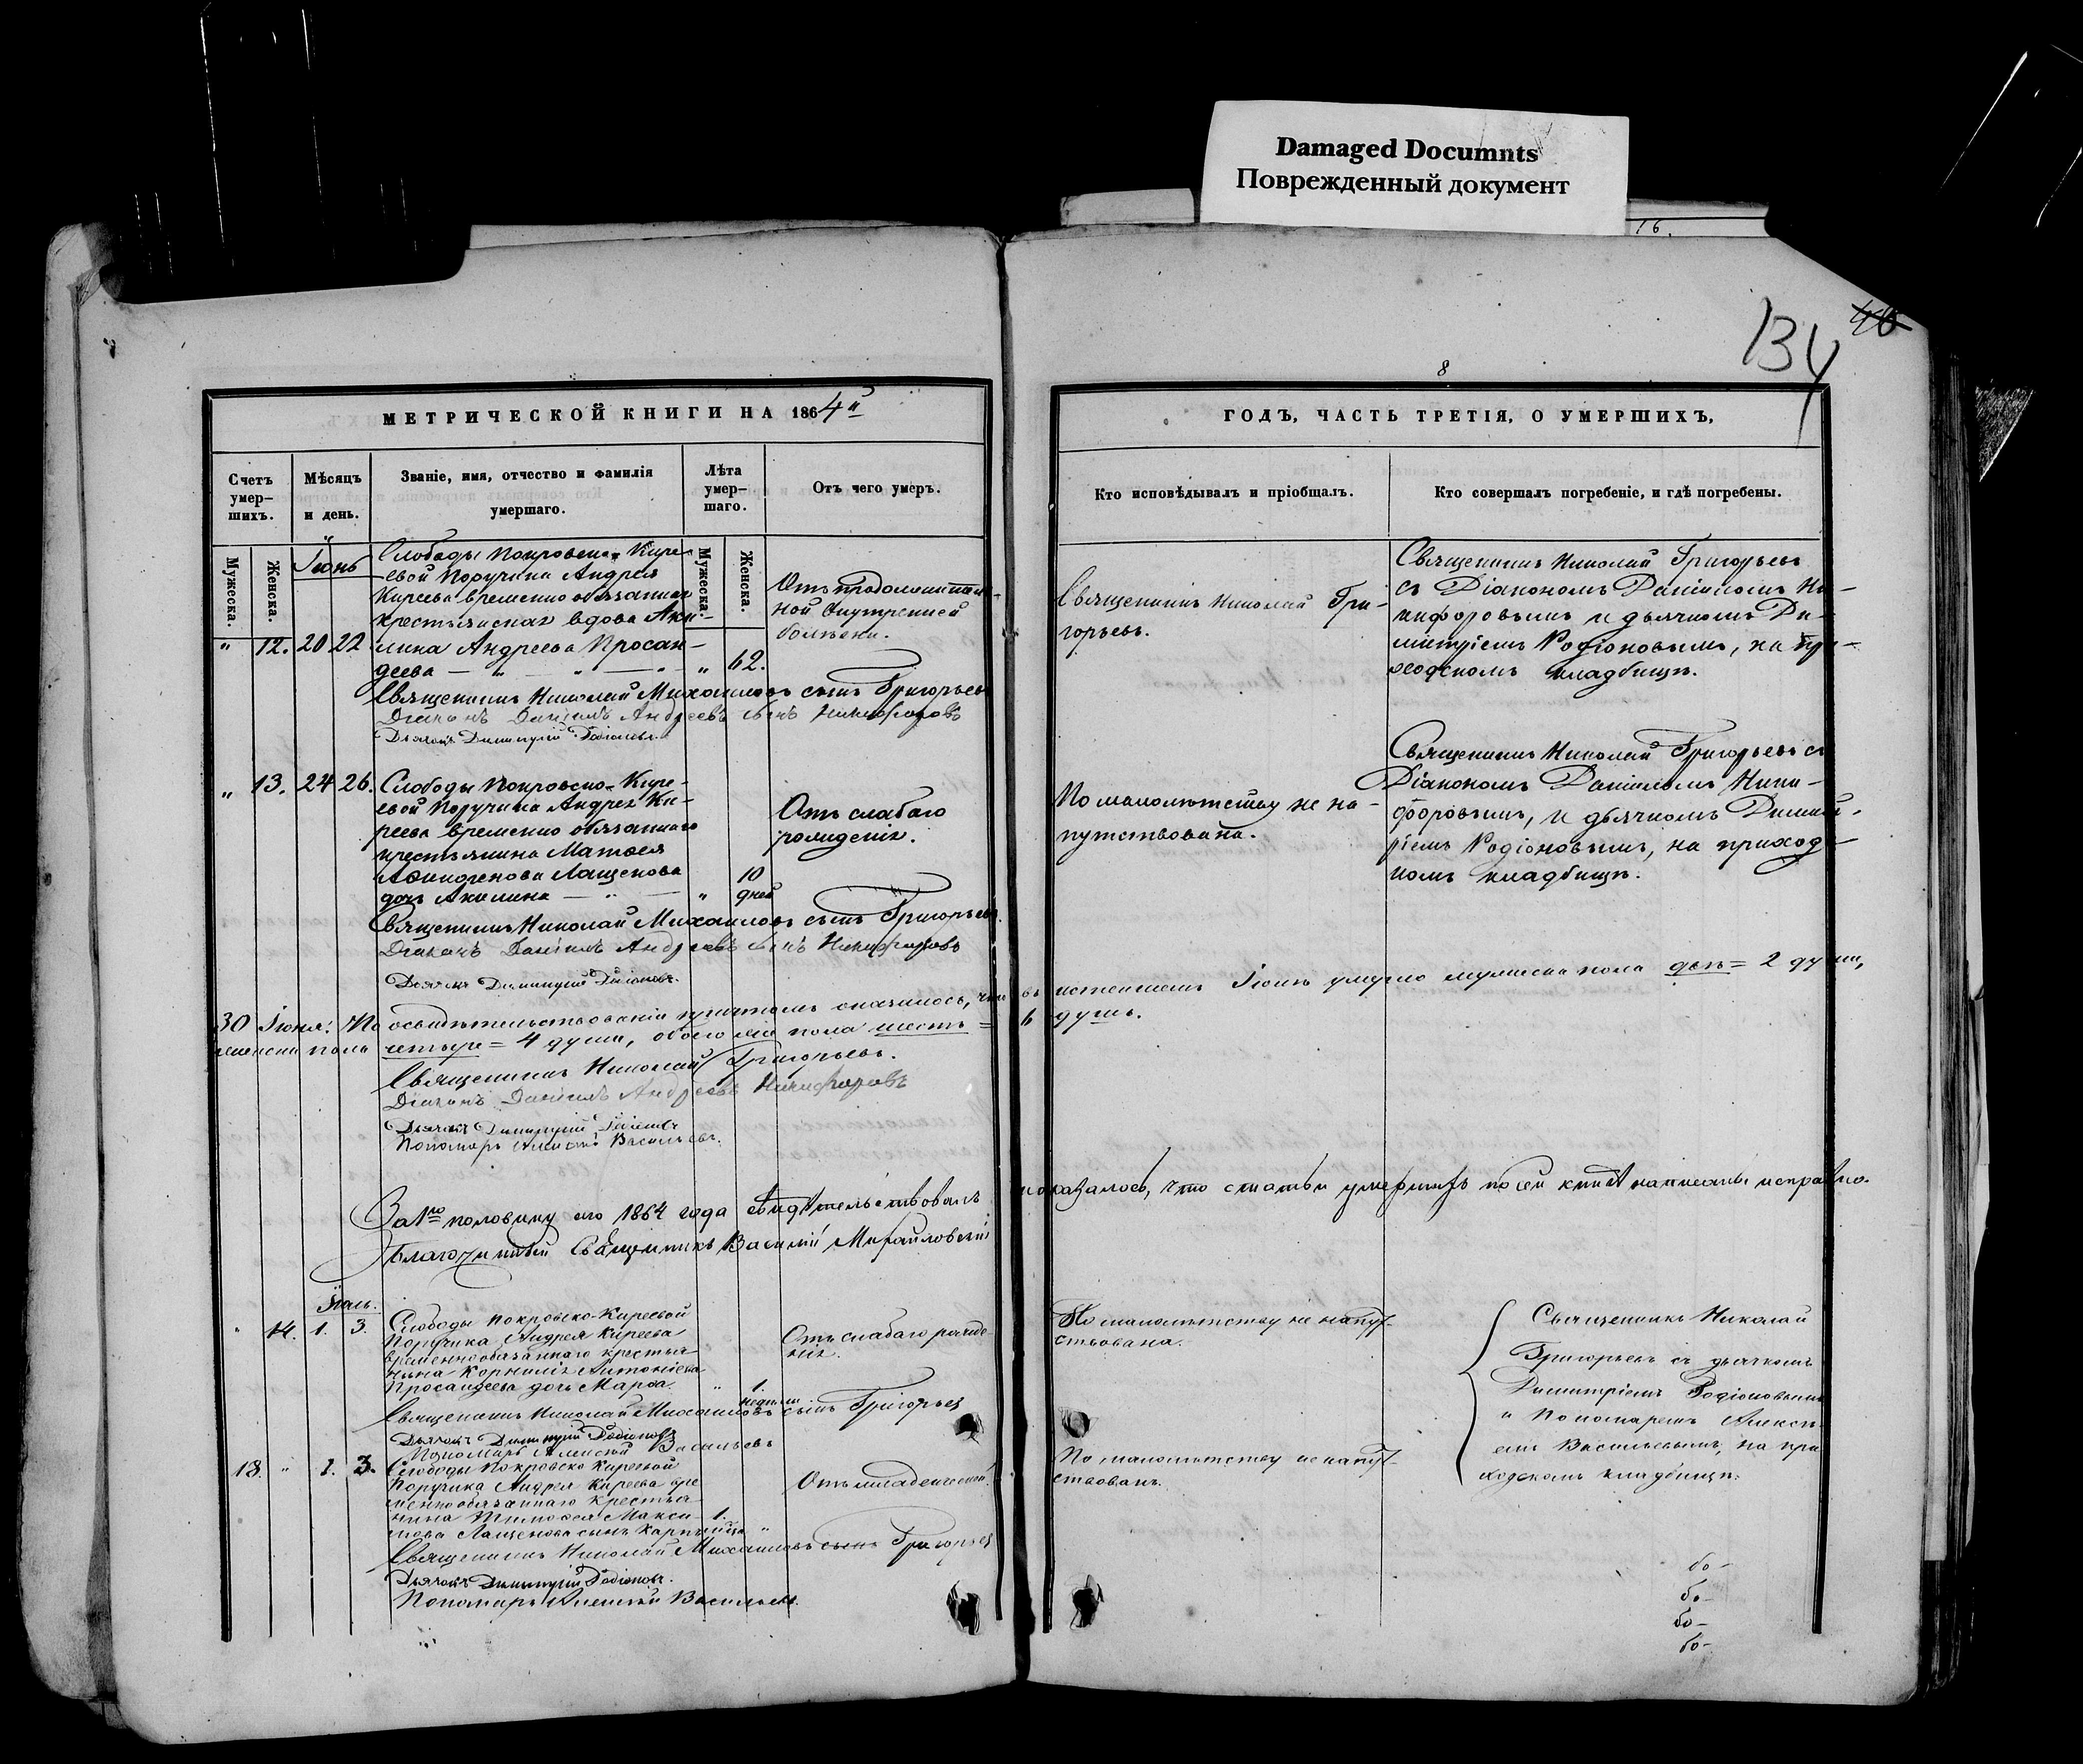 Damaged Documnts
Поврежденный документ
16.
134
40
8
МЕТРИЧЕСКОЙ КНИГИ НА 1864й
ГОДЪ, ЧАСТЬ ТРЕТІЯ, О УМЕРШИХЪ,
Счетъ умер-шихъ.
Мѣсяцъ и день.
Званіе, имя, отчество и фамилія умершаго.
Лѣта умер-шаго.
Отъ чего умеръ.
Кто исповѣдывалъ и пріобщалъ.
Кто совершалъ погребеніе, и гдѣ погребены.
Мужеска.
Женска.
Мужеска.
Женска.
Іюнь
" 12. 20 22
Слободы Покровско-Кире-
евой Поручика Андрея
Киреева временно обязанная
крестьянская вдова Аки-
лина Андреева Просан-
деева — " — " —
" 62.
Отъ продолжитель-
ной внутренней
болѣзни.
Священникъ Николай Гри-
горьевъ.
Священникъ Николай Григорьевъ
съ Діакономъ Даніиломъ Ни-
кифоровымъ и дьячкомъ Ди-
митріемъ Родіоновымъ, на при-
ходскомъ кладбищѣ.
Священникъ Николай Михаиловъ сынъ Григорьевъ
Діаконъ Даніилъ Андреевъ сынъ Никифоровъ
Дьячокъ Димитрій Родіоновъ.
" 13. 24 26.
Слободы Покровско-Кире-
евой Поручика Андрея Ки-
реева временно обязаннаго
крестьянина Матѳея
Лащенова
дочь Акилина — " —
" 10
дней
Отъ слабаго
рожденія.
По малолѣтству не на-
путствована.
Священникъ Николай Григорьевъ съ
Діакономъ Даніиломъ Ники-
форовымъ, и дьячкомъ Димит-
ріемъ Родіоновымъ, на приход-
комъ кладбищѣ.
Священникъ Николай Михаиловъ сынъ Григорьевъ.
Діаконъ Даніилъ Андреевъ сынъ Никифоровъ
Дьячокъ Димитрій Родіоновъ.
30 Іюня. По освидѣтельствованіи причтомъ оказалось, что въ теченіи Іюня умерло мужеска пола двѣ = 2 души,
женска пола четыре = 4 души, обоего пола шесть = 6 душъ.
Священникъ Николай Григорьевъ.
Діаконъ Даніилъ Андреевъ Никифоровъ
Дьячокъ Димитрій Родіоновъ
Пономарь Алексѣй Васильевъ.
За 1ю половину сего 1864 года свидѣтельствовалъ и оказалось, что статьи умершихъ по сей книгѣ написаны исправно.
Благочинный Священникъ Василій Михайловскій
Іюль.
" 14. 1. 3.
Слободы Покровско-Киреевой
Поручика Андрея Киреева
временнообязаннаго крестья-
нина Корнилія Антоніева
Просандеева дочь Марѳа.
" 1.
недѣли
Отъ слабаго рожде-
нія.
По малолѣтству не напут-
ствована.
Священникъ Николай
Григорьевъ съ дьячкомъ
Димитріемъ Родіоновымъ
и Пономаремъ Алексѣ-
емъ Васильевымъ, на при-
ходскомъ кладбищѣ.
Священникъ Николай Михаиловъ сынъ Григорьевъ
Дьячокъ Димитрій Родіоновъ
Пономарь Алексѣй Васильевъ
13. " 1. 3.
Слободы Покровско Киреевой
Поручика Андрея Киреева вре-
меннообязаннаго крестья-
нина Тимоѳея Макси-
мова Лащенова сынъ Карпъ
1. "
Отъ младенческой.
По малолѣтству не напут-
ствованъ.
Священникъ Николай Михаиловъ сынъ Григорьевъ
Дьячокъ Димитрій Родіоновъ.
Пономарь Алексѣй Васильевъ.
бо-
бо-
бо-
бо-